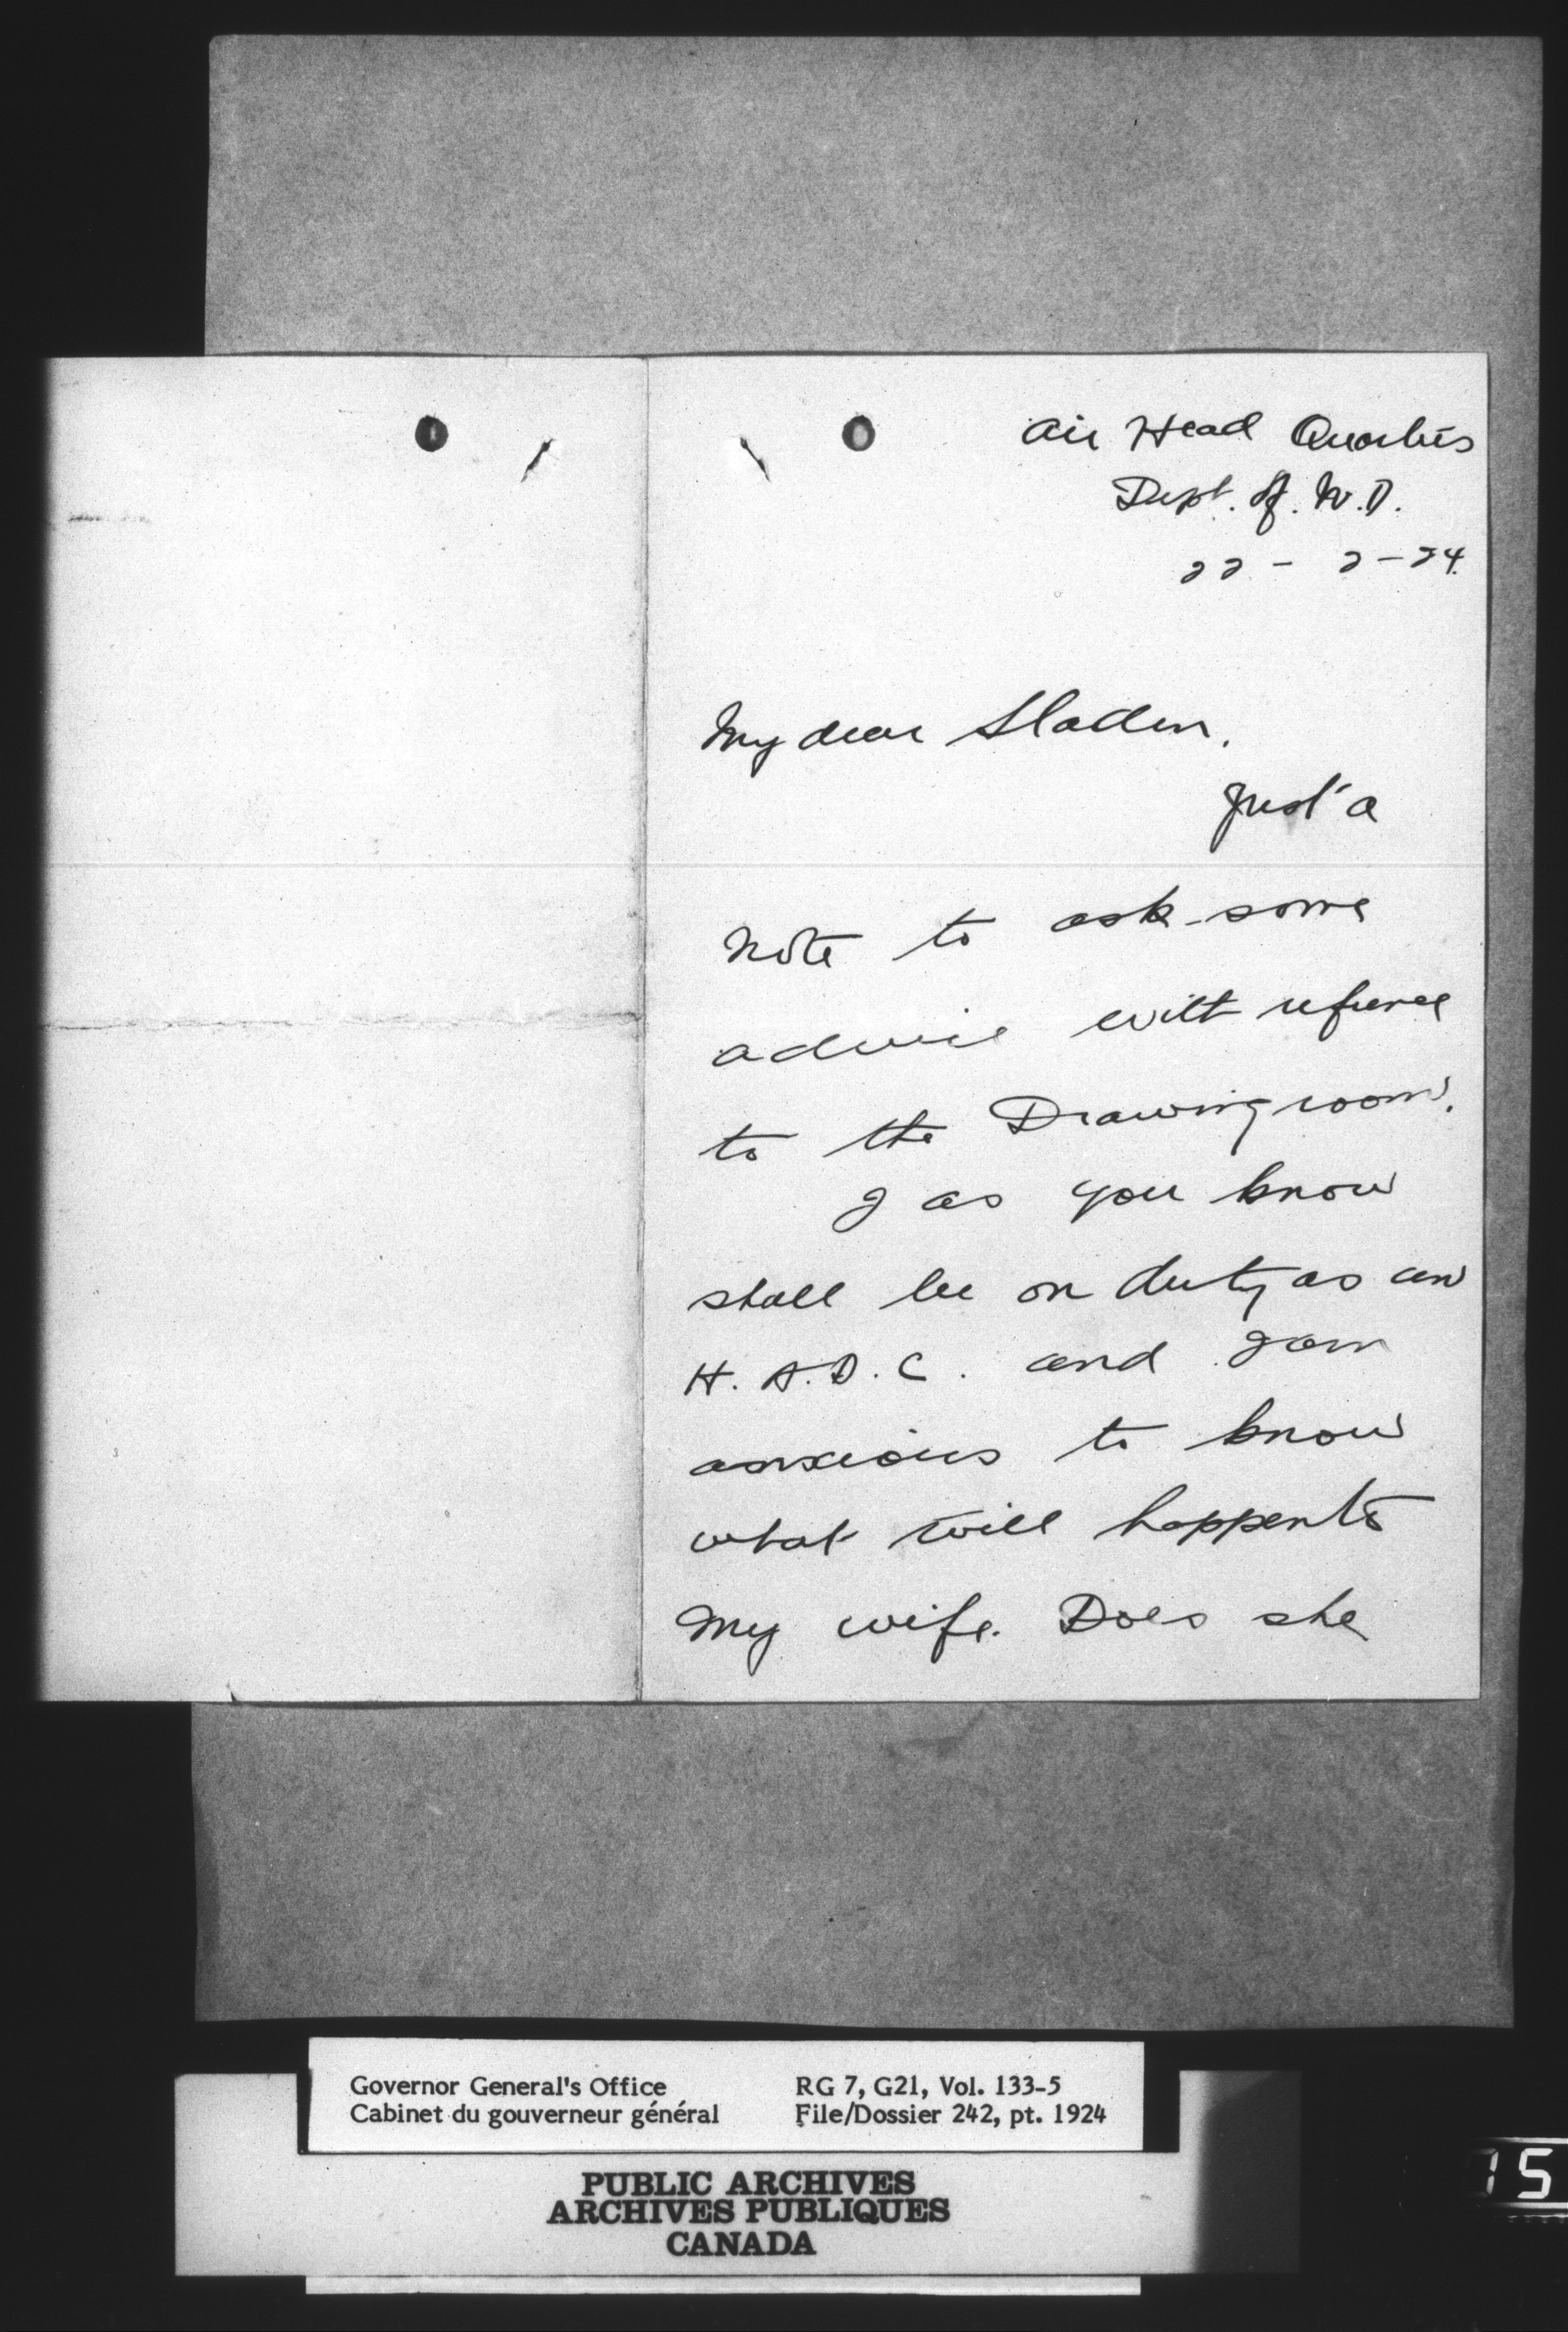 Air Head Quarters
Dept. of. N.D.
22 - 2 - 24.
My dear Sladen,
Just a
note to ask some
advice with reference
to the Drawingroom.
I as you know
shall be on duty as an
H. A. D. C. and I am
anxious to know
what will happen to
my wife. Does she
Governor General's Office
Cabinet du gouverneur général
RG 7, G21, Vol. 133-5
File/Dossier 242, pt. 1924
PUBLIC ARCHIVES
ARCHIVES PUBLIQUES
CANADA
15